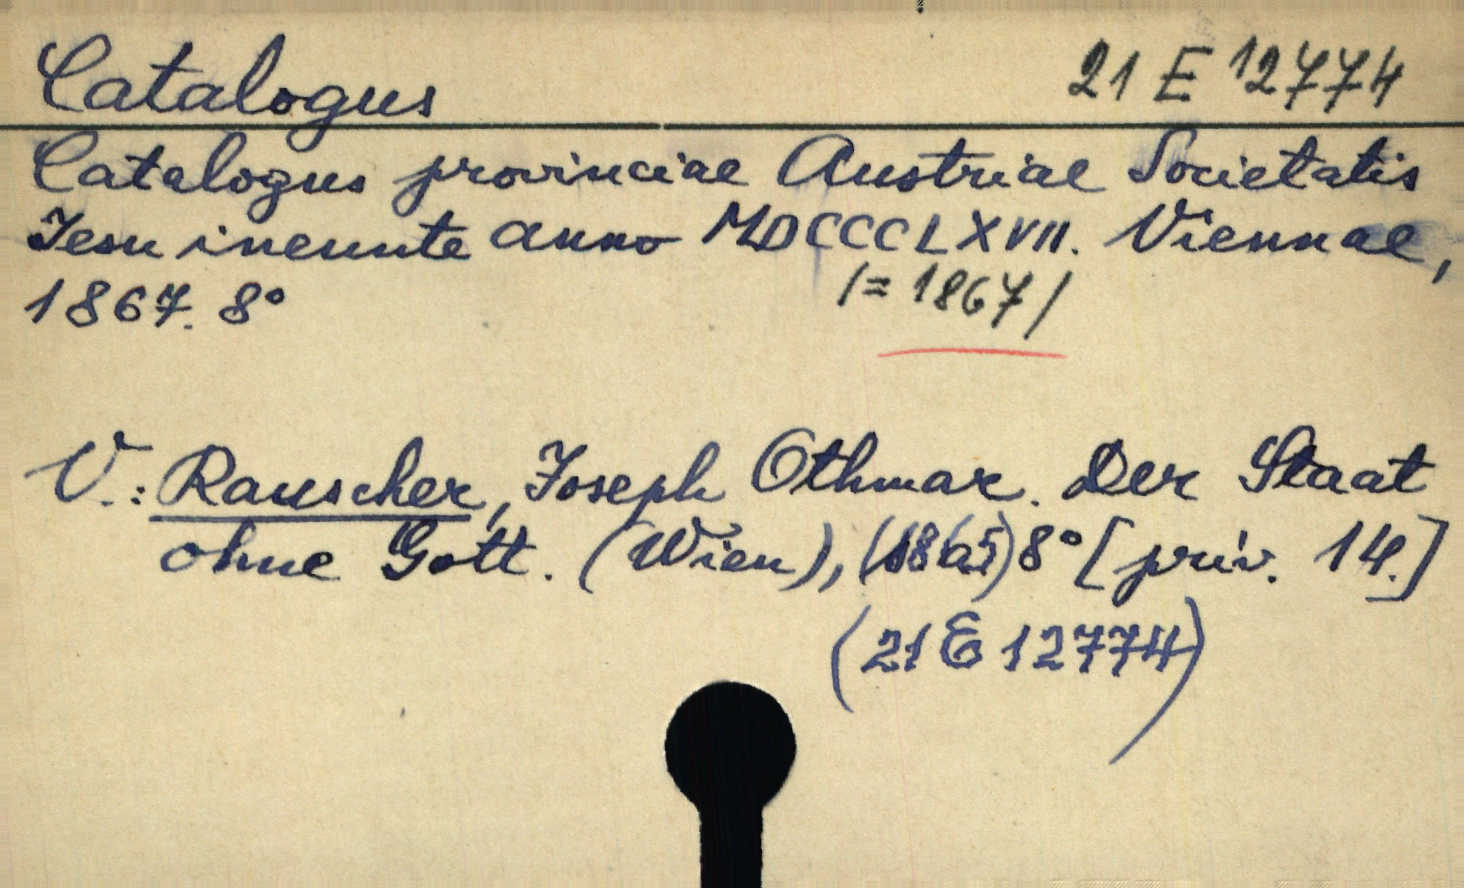 Catalogus 21 E 12774
Catalogus provinciae Austriae Societatis
Iesu ineunte anno MDCCCLXVII. Viennae,
1867. 8° /= 1867/
V.: Rauscher, Joseph Othmar. Der Staat
ohne Gott. (Wien), (1865) 8° [priv. 14.]
(21 E 12774)